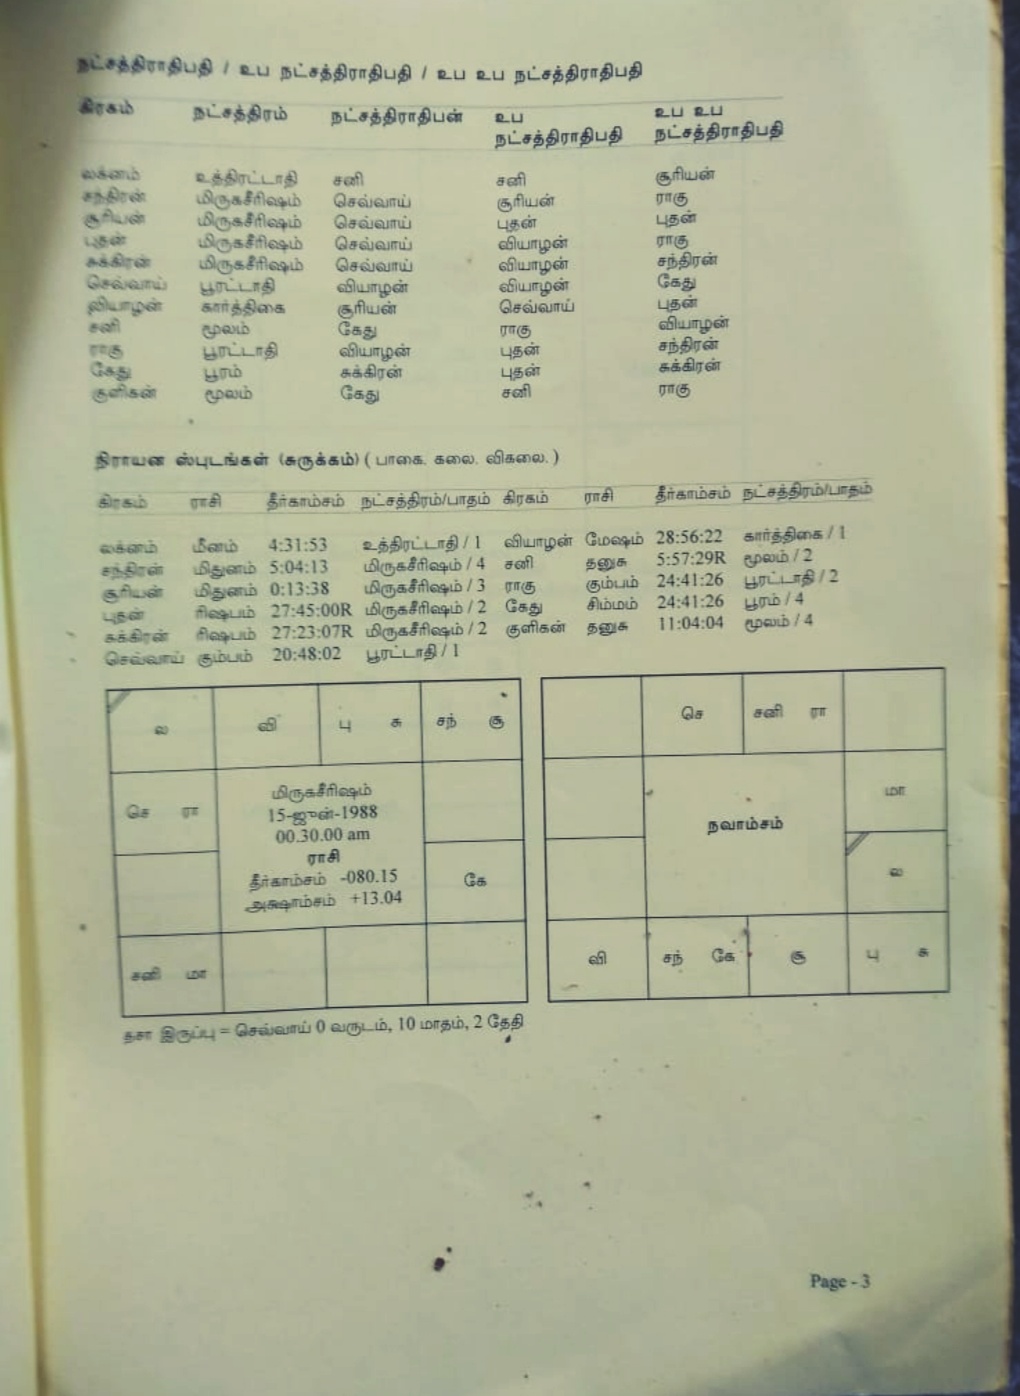 நட்சத்திராதிபதி / உப நட்சத்திராதிபதி / உப உப நட்சத்திராதிபதி
கிரகம் நட்சத்திரம் நட்சத்திராதிபன் உப நட்சத்திராதிபதி உப உப நட்சத்திராதிபதி
லக்னம் உத்திரட்டாதி சனி சனி சூரியன்
சந்திரன் மிருகசீரிஷம் செவ்வாய் சூரியன் ராகு
சூரியன் மிருகசீரிஷம் செவ்வாய் புதன் புதன்
புதன் மிருகசீரிஷம் செவ்வாய் வியாழன் ராகு
சுக்கிரன் மிருகசீரிஷம் செவ்வாய் வியாழன் சந்திரன்
செவ்வாய் பூரட்டாதி வியாழன் வியாழன் கேது
வியாழன் கார்த்திகை சூரியன் செவ்வாய் புதன்
சனி மூலம் கேது ராகு வியாழன்
ராகு பூரட்டாதி வியாழன் புதன் சந்திரன்
கேது பூரம் சுக்கிரன் புதன் சுக்கிரன்
குளிகன் மூலம் கேது சனி ராகு
நிராயன ஸ்புடங்கள் (சுருக்கம்) ( பாகை. கலை. விகலை. )
கிரகம் ராசி தீர்காம்சம் நட்சத்திரம்/பாதம் கிரகம் ராசி தீர்காம்சம் நட்சத்திரம்/பாதம்
லக்னம் மீனம் 4:31:53 உத்திரட்டாதி / 1 வியாழன் மேஷம் 28:56:22 கார்த்திகை / 1
சந்திரன் மிதுனம் 5:04:13 மிருகசீரிஷம் / 4 சனி தனுசு 5:57:29R மூலம் / 2
சூரியன் மிதுனம் 0:13:38 மிருகசீரிஷம் / 3 ராகு கும்பம் 24:41:26 பூரட்டாதி / 2
புதன் ரிஷபம் 27:45:00R மிருகசீரிஷம் / 2 கேது சிம்மம் 24:41:26 பூரம் / 4
சுக்கிரன் ரிஷபம் 27:23:07R மிருகசீரிஷம் / 2 குளிகன் தனுசு 11:04:04 மூலம் / 4
செவ்வாய் கும்பம் 20:48:02 பூரட்டாதி / 1
ல வி பு சு சந் சூ
செ ரா
மிருகசீரிஷம்
15-ஜுன்-1988
00.30.00 am
ராசி
தீர்காம்சம் -080.15
அக்ஷாம்சம் +13.04
கே
சனி மா
செ சனி ரா
மா
நவாம்சம்
ல
வி சந் கே சூ பு சு
தசா இருப்பு = செவ்வாய் 0 வருடம், 10 மாதம், 2 தேதி
Page - 3